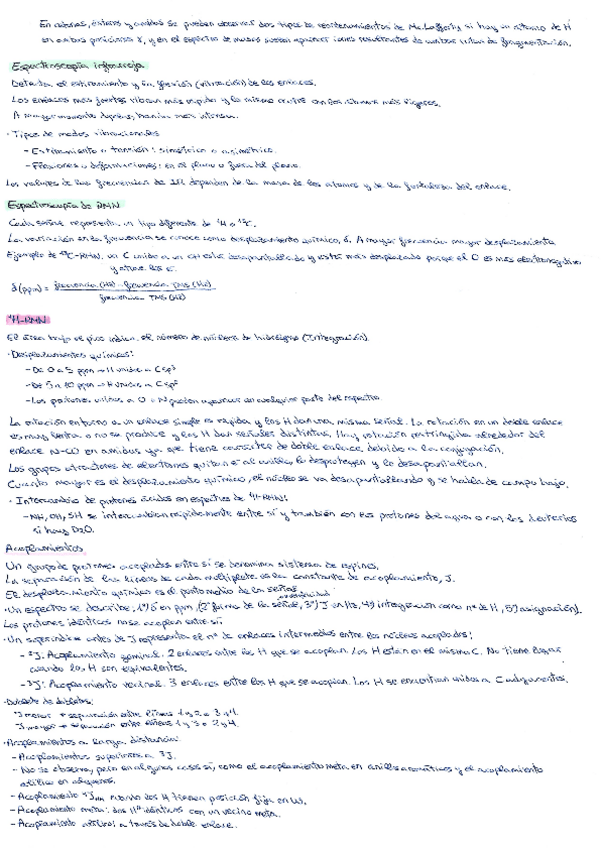 En cetonas, ésteres y amidas se pueden observar dos tipos de reordenamientos de McLafferty si hay un átomo de H
en ambas posiciones γ, y en el espectro de masas pueden aparecer iones resultantes de ambas rutas de fragmentación.
Espectroscopía infrarroja
Detecta el estiramiento y la flexión (vibración) de los enlaces.
Los enlaces más fuertes vibran más rápido y lo mismo ocurre con los átomos más ligeros.
A mayor momento dipolar, banda más intensa.
· Tipos de modos vibracionales
- Estiramiento o tensión: simétrica o asimétrica.
- Flexiones o deformaciones: en el plano o fuera del plano.
Los valores de las frecuencias de IR dependen de la masa de los átomos y de la fortaleza del enlace.
Espectroscopía de RMN
Cada señal representa un tipo diferente de ¹H o ¹³C.
La variación en la frecuencia se conoce como desplazamiento químico, δ. A mayor frecuencia mayor desplazamiento
Ejemplo de ¹³C-RMN: un C unido a un OH está desapantallado y está más desplazado porque el O es más electronegativo
y atrae los e⁻.
δ(ppm) = frecuencia (Hz) - frecuencia TMS (Hz)
frecuencia TMS (Hz)
¹H-RMN
El área bajo el pico indica el número de núcleos de hidrógeno (Integración).
· Desplazamientos químicos:
- De 0 a 5 ppm → H unidos a C sp³
- De 5 a 10 ppm → H unidos a C sp²
- Los protones unidos a O o N pueden aparecer en cualquier parte del espectro
La rotación entorno a un enlace simple es rápida y los H dan una misma señal. La rotación en un doble enlace
es muy lenta o no se produce y los H dan señales distintas. Hay rotación restringida alrededor del
enlace N-CO en amidas ya que tiene carácter de doble enlace, debido a la conjugación.
Los grupos atractores de electrones quitan e⁻ al núcleo, lo desprotegen y lo desapantallan.
Cuanto mayor es el desplazamiento químico, el núcleo se va desapantallando y se habla de campo bajo.
· Intercambio de protones ácidos en espectros de ¹H-RMN:
- NH, OH, SH se intercambian rápidamente entre sí y también con los protones del agua o con los deuterios
si hay D₂O.
Acoplamientos
Un grupo de protones acoplados entre sí se denomina sistema de espines.
La separación de las líneas de cada multiplete es la constante de acoplamiento, J.
El desplazamiento químico es el punto medio de la señal.
· Un espectro se describe: 1º) δ en ppm, (2º forma de la señal, 3º) J en Hz, 4º) integración como nº de H, 5º) asignación).
Los protones idénticos no se acoplan entre sí
· Un superíndice antes de J representa el nº de enlaces intermedios entre los núcleos acoplados:
- ²J: Acoplamiento geminal. 2 enlaces entre los H que se acoplan. Los H están en el mismo C. No tiene lugar
cuando los H son equivalentes.
- ³J: Acoplamiento vecinal. 3 enlaces entre los H que se acoplan. Los H se encuentran unidos a C adyacentes.
· Doblete de dobletes:
J menor → separación entre líneas 1 y 2 o 3 y 4
J mayor → separación entre líneas 1 y 3 o 2 y 4.
· Acoplamientos a larga distancia:
- Acoplamientos superiores a ³J.
- No se observa, pero en algunos casos sí, como el acoplamiento meta en anillos aromáticos y el acoplamiento
alílico en alquenos.
- Acoplamiento cuando los H tienen posición fija en W.
- Acoplamiento meta: dos H idénticos con un vecino meta.
- Acoplamiento alílico: a través de doble enlace.